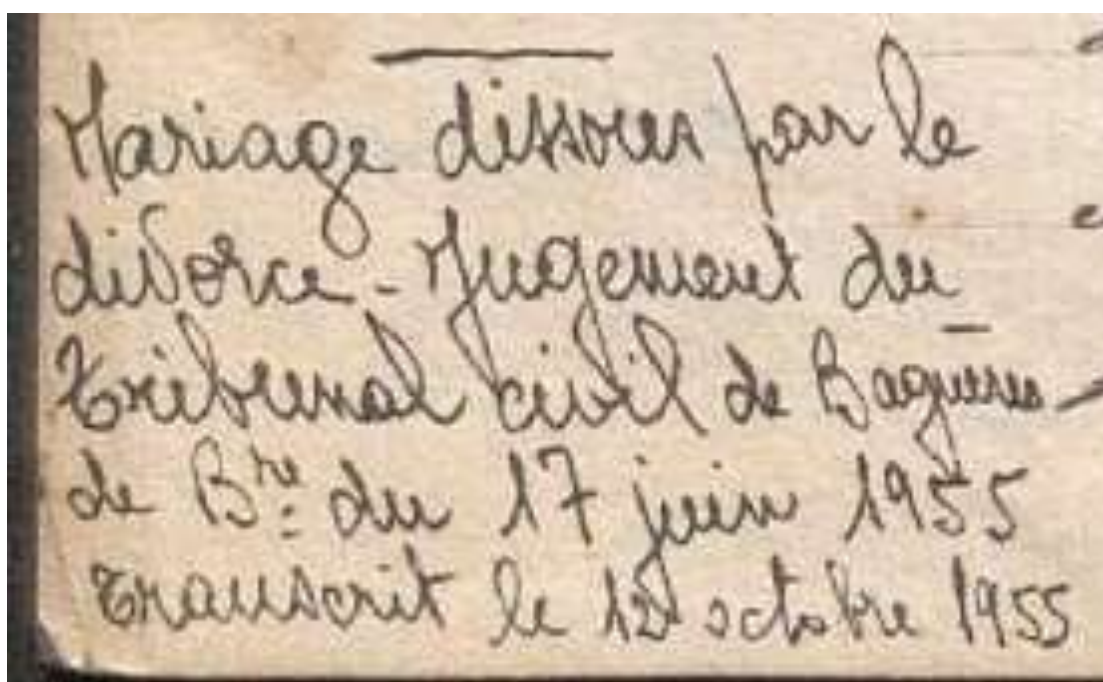 Mariage dissous par le
divorce - Jugement du
Tribunal civil de Bagneres -
de Bre du 17 juin 1955
Transcrit le 12 octobre 1955